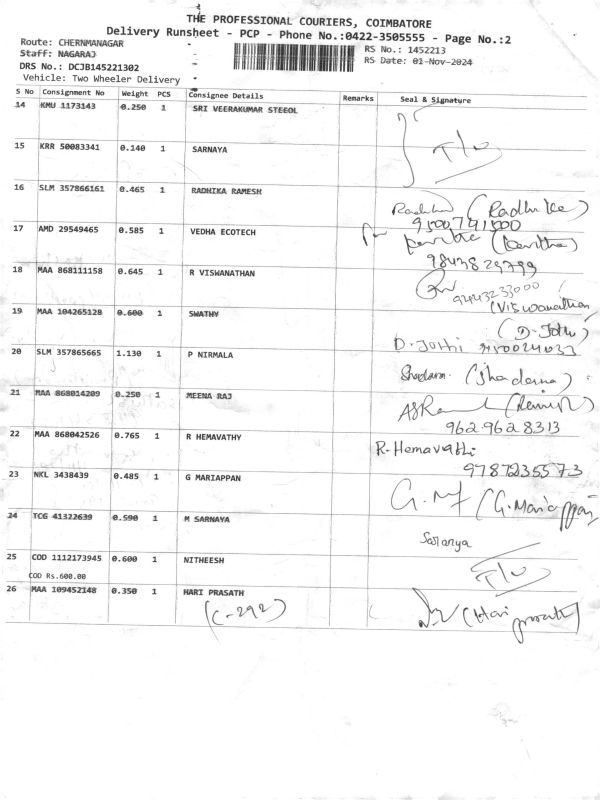 THE PROFESSIONAL COURIERS, COIMBATORE
Delivery Runsheet - PCP - Phone No.:0422-3505555 - Page No.:2
Route: CHERNMANAGAR
RS No.: 1452213
Staff: NAGARAJ
RS Date: 01-Nov-2024
DRS No.: DCJB145221302
Vehicle: Two Wheeler Delivery
S No Consignment No Weight PCS Consignee Details Remarks Seal & Signature
14 KMU 1173143 0.250 1 SRI VEERAKUMAR STEEOL
15 KRR 50083341 0.140 1 SARNAYA
16 SLM 357866161 0.465 1 RADHIKA RAMESH
(Radhika)
9500791500
17 AMD 29549465 0.585 1 VEDHA ECOTECH
9843829799
18 MAA 868111158 0.645 1 R VISWANATHAN
9443233000
(Viswanathan
19 MAA 104265128 0.600 1 SWATHY
(D. Jothi)
D. Jothi
20 SLM 357865665 1.130 1 P NIRMALA
21 MAA 868014209 0.250 1 MEENA RAJ
9629628313
22 MAA 868042526 0.765 1 R HEMAVATHY
R. Hemavathi
9787235573
23 NKL 3438439 0.485 1 G MARIAPPAN
(G. Mariappan
24 TCG 41322639 0.590 1 M SARNAYA
Saranya
25 COD 1112173945 0.600 1 NITHEESH
COD Rs.600.00
26 MAA 109452148 0.350 1 HARI PRASATH
(C-292)
(Hari
prasath)